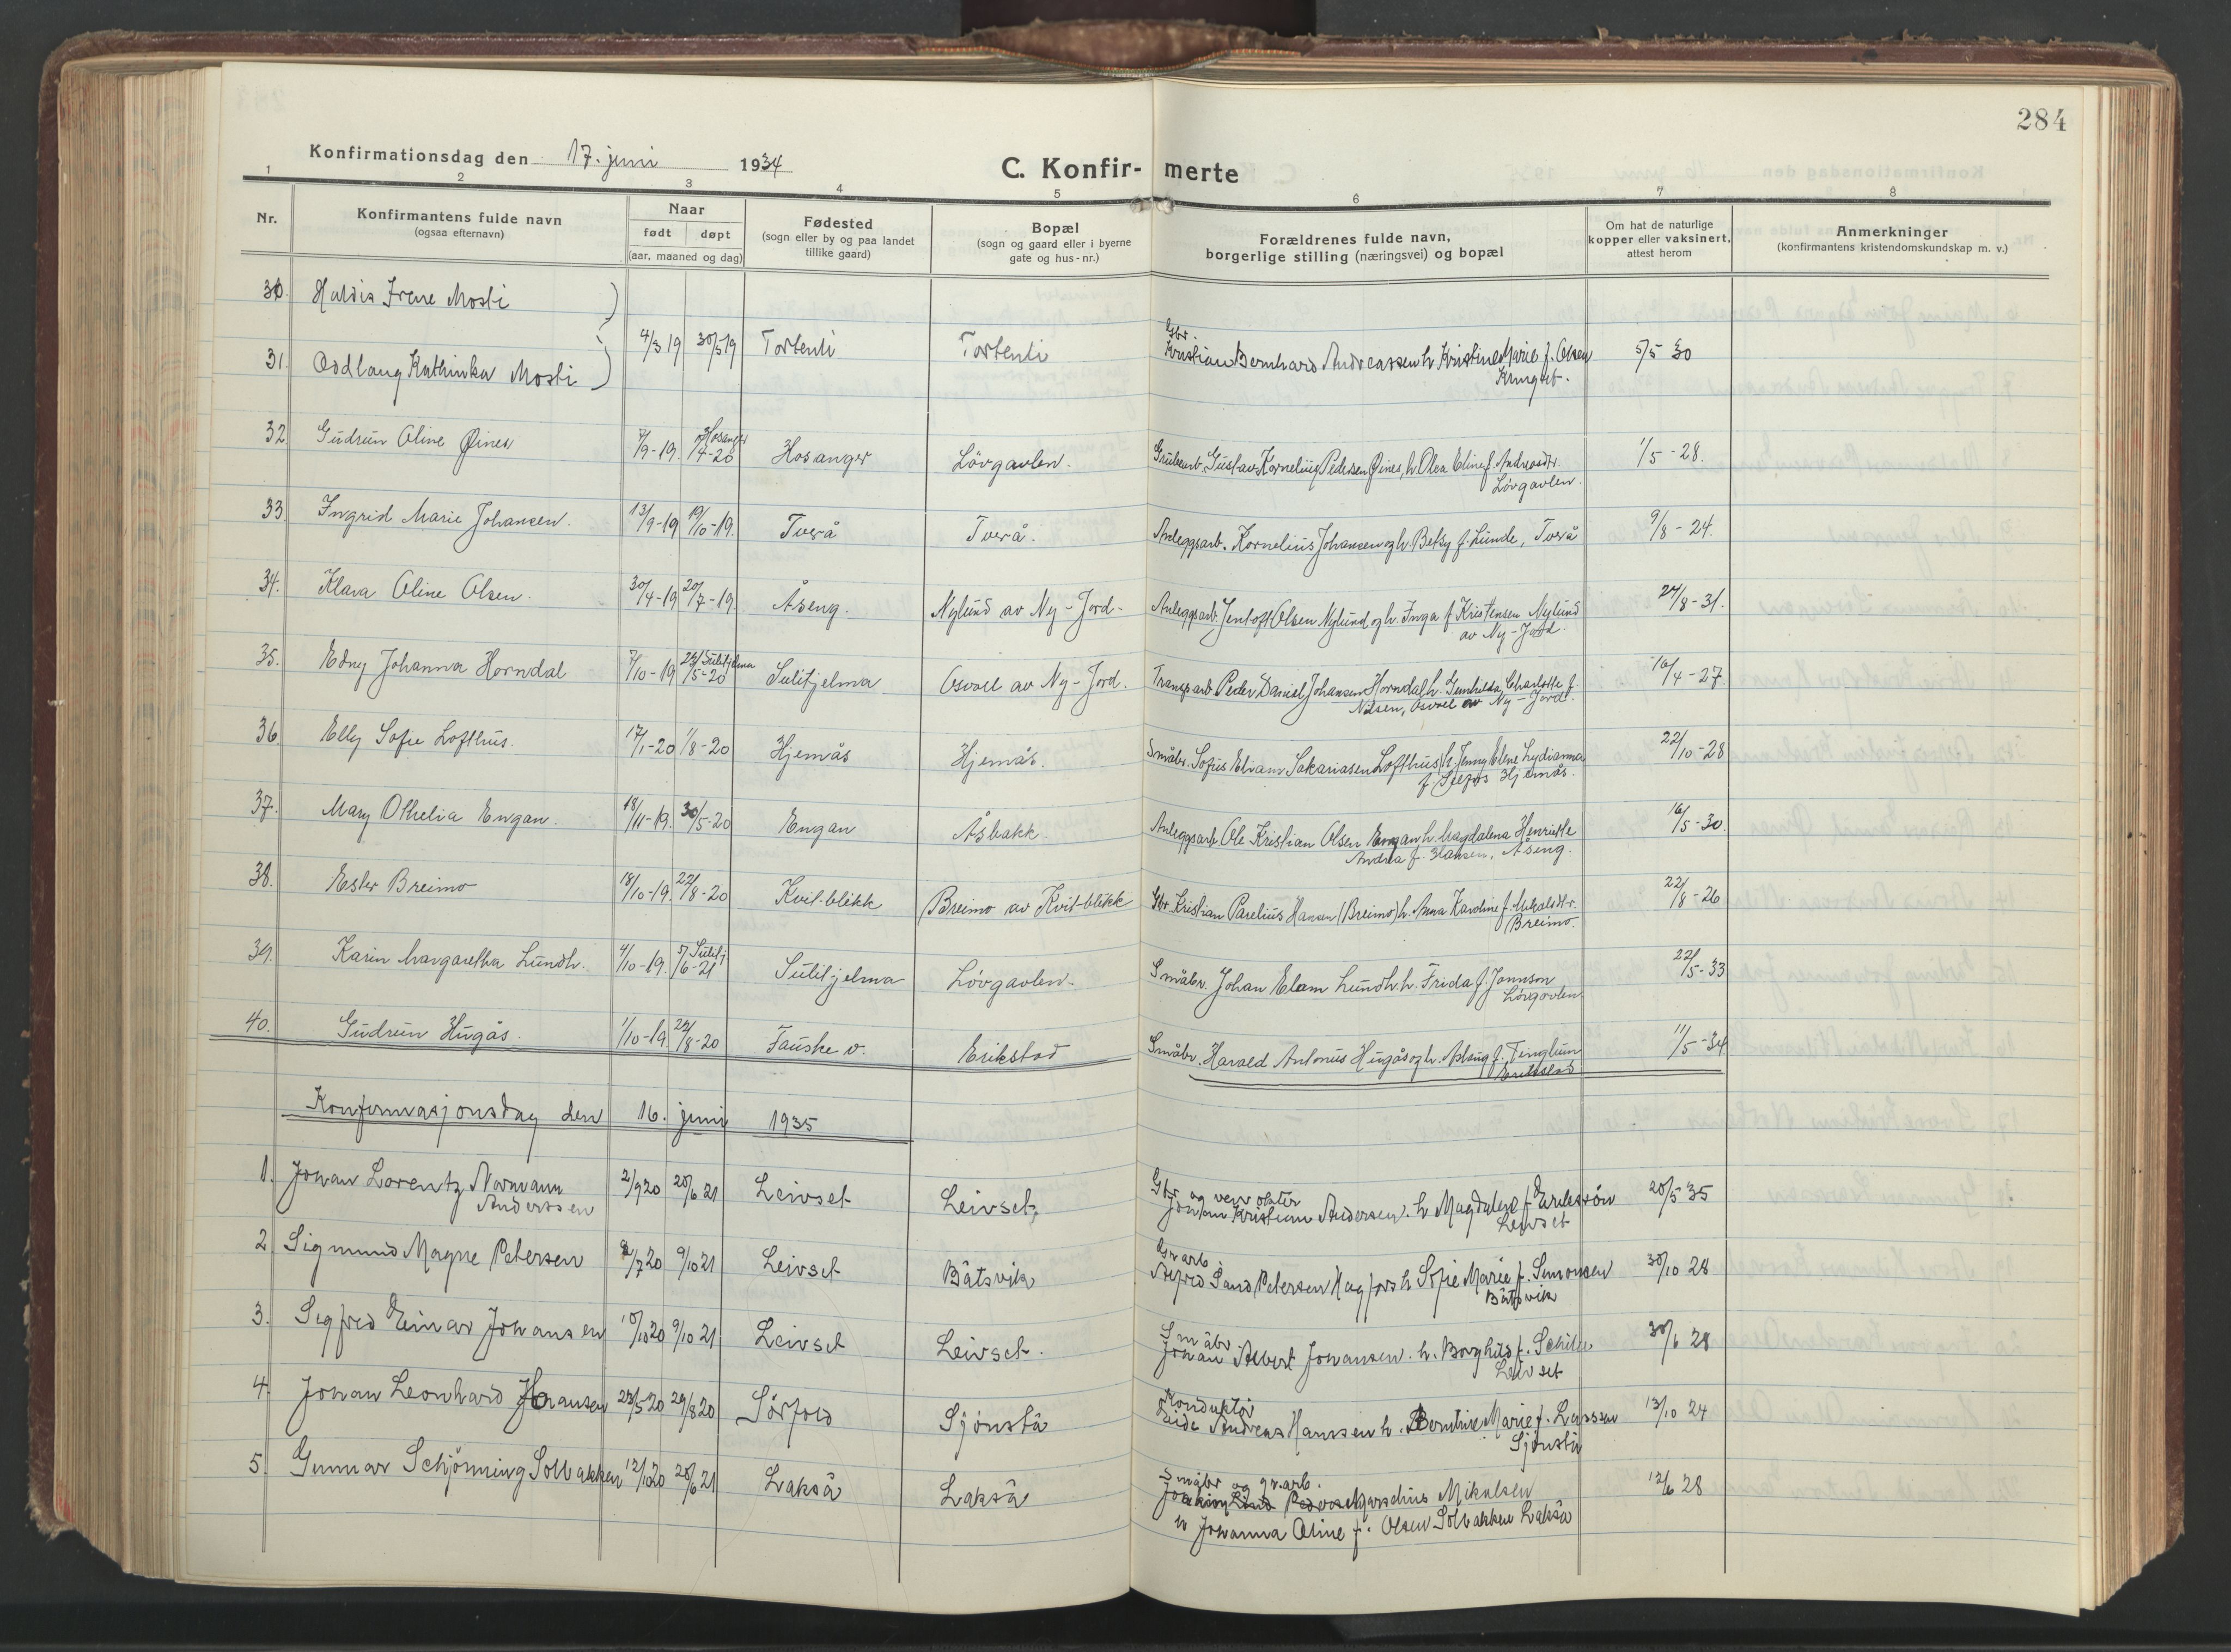 284
Konfirmationsdag den 17. juni 1934
C. Konfir- merte
1 2 3 4 5 6 7 8
Nr.
Konfirmantens fulde navn
(ogsaa efternavn)
Naar
født døpt
(aar, maaned og dag)
Fødested
(sogn eller by og paa landet
tillike gaard)
Bopæl
(sogn og gaard eller i byerne
gate og hus-nr.)
Forældrenes fulde navn,
borgerlige stilling (næringsvei) og bopæl
Om hat de naturlige
kopper eller vaksinert,
attest herom
Anmerkninger
(konfirmantens kristendomskundskap m. v.)
30. Haldis Irene Mosti
31. Oddlaug Kathinka Mosti 4/3 19 30/5 19 Tortenli Tortenli Gbr. Kristian Bernhard Andreassen h. Kristine Marie f. Olsen 5/5 30
32. Gudrun Oline Øines 7/9-19. Hosanger /4-20 Hosanger Lövgavlen. Grubearb. Gustav Kornelius Pedersen Øines, h. Olea Eline f. Andreasdtr. 1/5-28.
Lövgavlen.
33. Ingrid Marie Johansen. 13/9-19 19/10-19. Tverå Tverå. Anleggsarb. Kornelius Johansen og h. Betsy f. Lunde, Tverå 9/8-24.
34. Klara Oline Olsen. 30/4-19 20/7-19. Åseng. Nylund av Ny-Jord- Anleggsarb. Jentoft Olsen Nylund og h. Inga f. Kristensen Nylund 24/8-31.
av Ny-Jord.
35. Edny Johanna Horndal 7/10-19 24/5-20 Sulitjelma Sulitjelma Osvoll av Ny-Jord. Transp.arb Peder Daniel Johansen Horndal h. Gunhilda Charlotte f. 16/4-27.
Nilsen, Osvoll av Ny-Jord.
36. Elly Sofie Lofthus. 17/1-20 1/8-20 Hjemås Hjemås. Småbr. Sofus Eliam Sakariasen Lofthus, h. Jenny Elene Lydianna 22/10-28
Hjemås.
37. Mary Othelia Engan. 18/11-19. 30/5-20 Engan Åsbakk. Anleggsarb. Ole Kristian Olsen Engan h. Magdalena Henriette 16/5-30.
Andrea f. Hansen, Åseng.
38. Ester Breimo 18/10-19. 22/8-20 Kvit-blikk Breimo av Kvit-blikk Gbr. Kristian Parelius Hansen (Breimo) h. Anna Karoline f. Mikalsdtr. 22/8-26
Breimo.
39. Karin Margaretha Lundh. 4/10-19. 5/6-21 Sulitj Sulitjelma Lövgavlen. Småbr. Johan Elam Lundh h. Frida f. Jonnson 22/5-33
Lövgavlen
40. Gudrun Hugås. 1/10-19. 22/8-20 Fauske v. Erikstad Småbr. Harald Antonius Hugås og h. Aslaug f. Tinglum 11/5-34
Erikstad
Konfirmasjonsdag den 16. juni 1935
1. Johan Lorentz Normann 2/9 20 20/6 21 Leivset Leivset, Gbr og 20/5 35
Anderssen Johan Kristian Andersen. h. Magdalene f.
Leivset
2. Sigmund Magne Petersen 2/7 20 9/10 21 Leivset Båtsvik Alfred Sand Petersen Hagfors h. Sofie Marie f. Simonsen 30/10 28
Båtsvik
3. Sigfred Einar Johansen 10/10 20 9/10 21 Leivset Leivset. Småbr 30/6 28
Johan Albert Johansen. h. Borghild f.
Leivset
4. Johan Leonhard Hansen 23/5 20 29/8 20 Sörfold Sjönstå Konduktör 13/10 24
Andreas Hanssen h. Berntine Marie f. Larssen
Sjönstå
5. Gunnar Schjönning Solbakken 12/10 20 20/6 21 Lakså Lakså Småbr og gr.arb. 12/6 28
Marselius Mikalsen
h Johanna Oline f. Olsen Solbakken Lakså